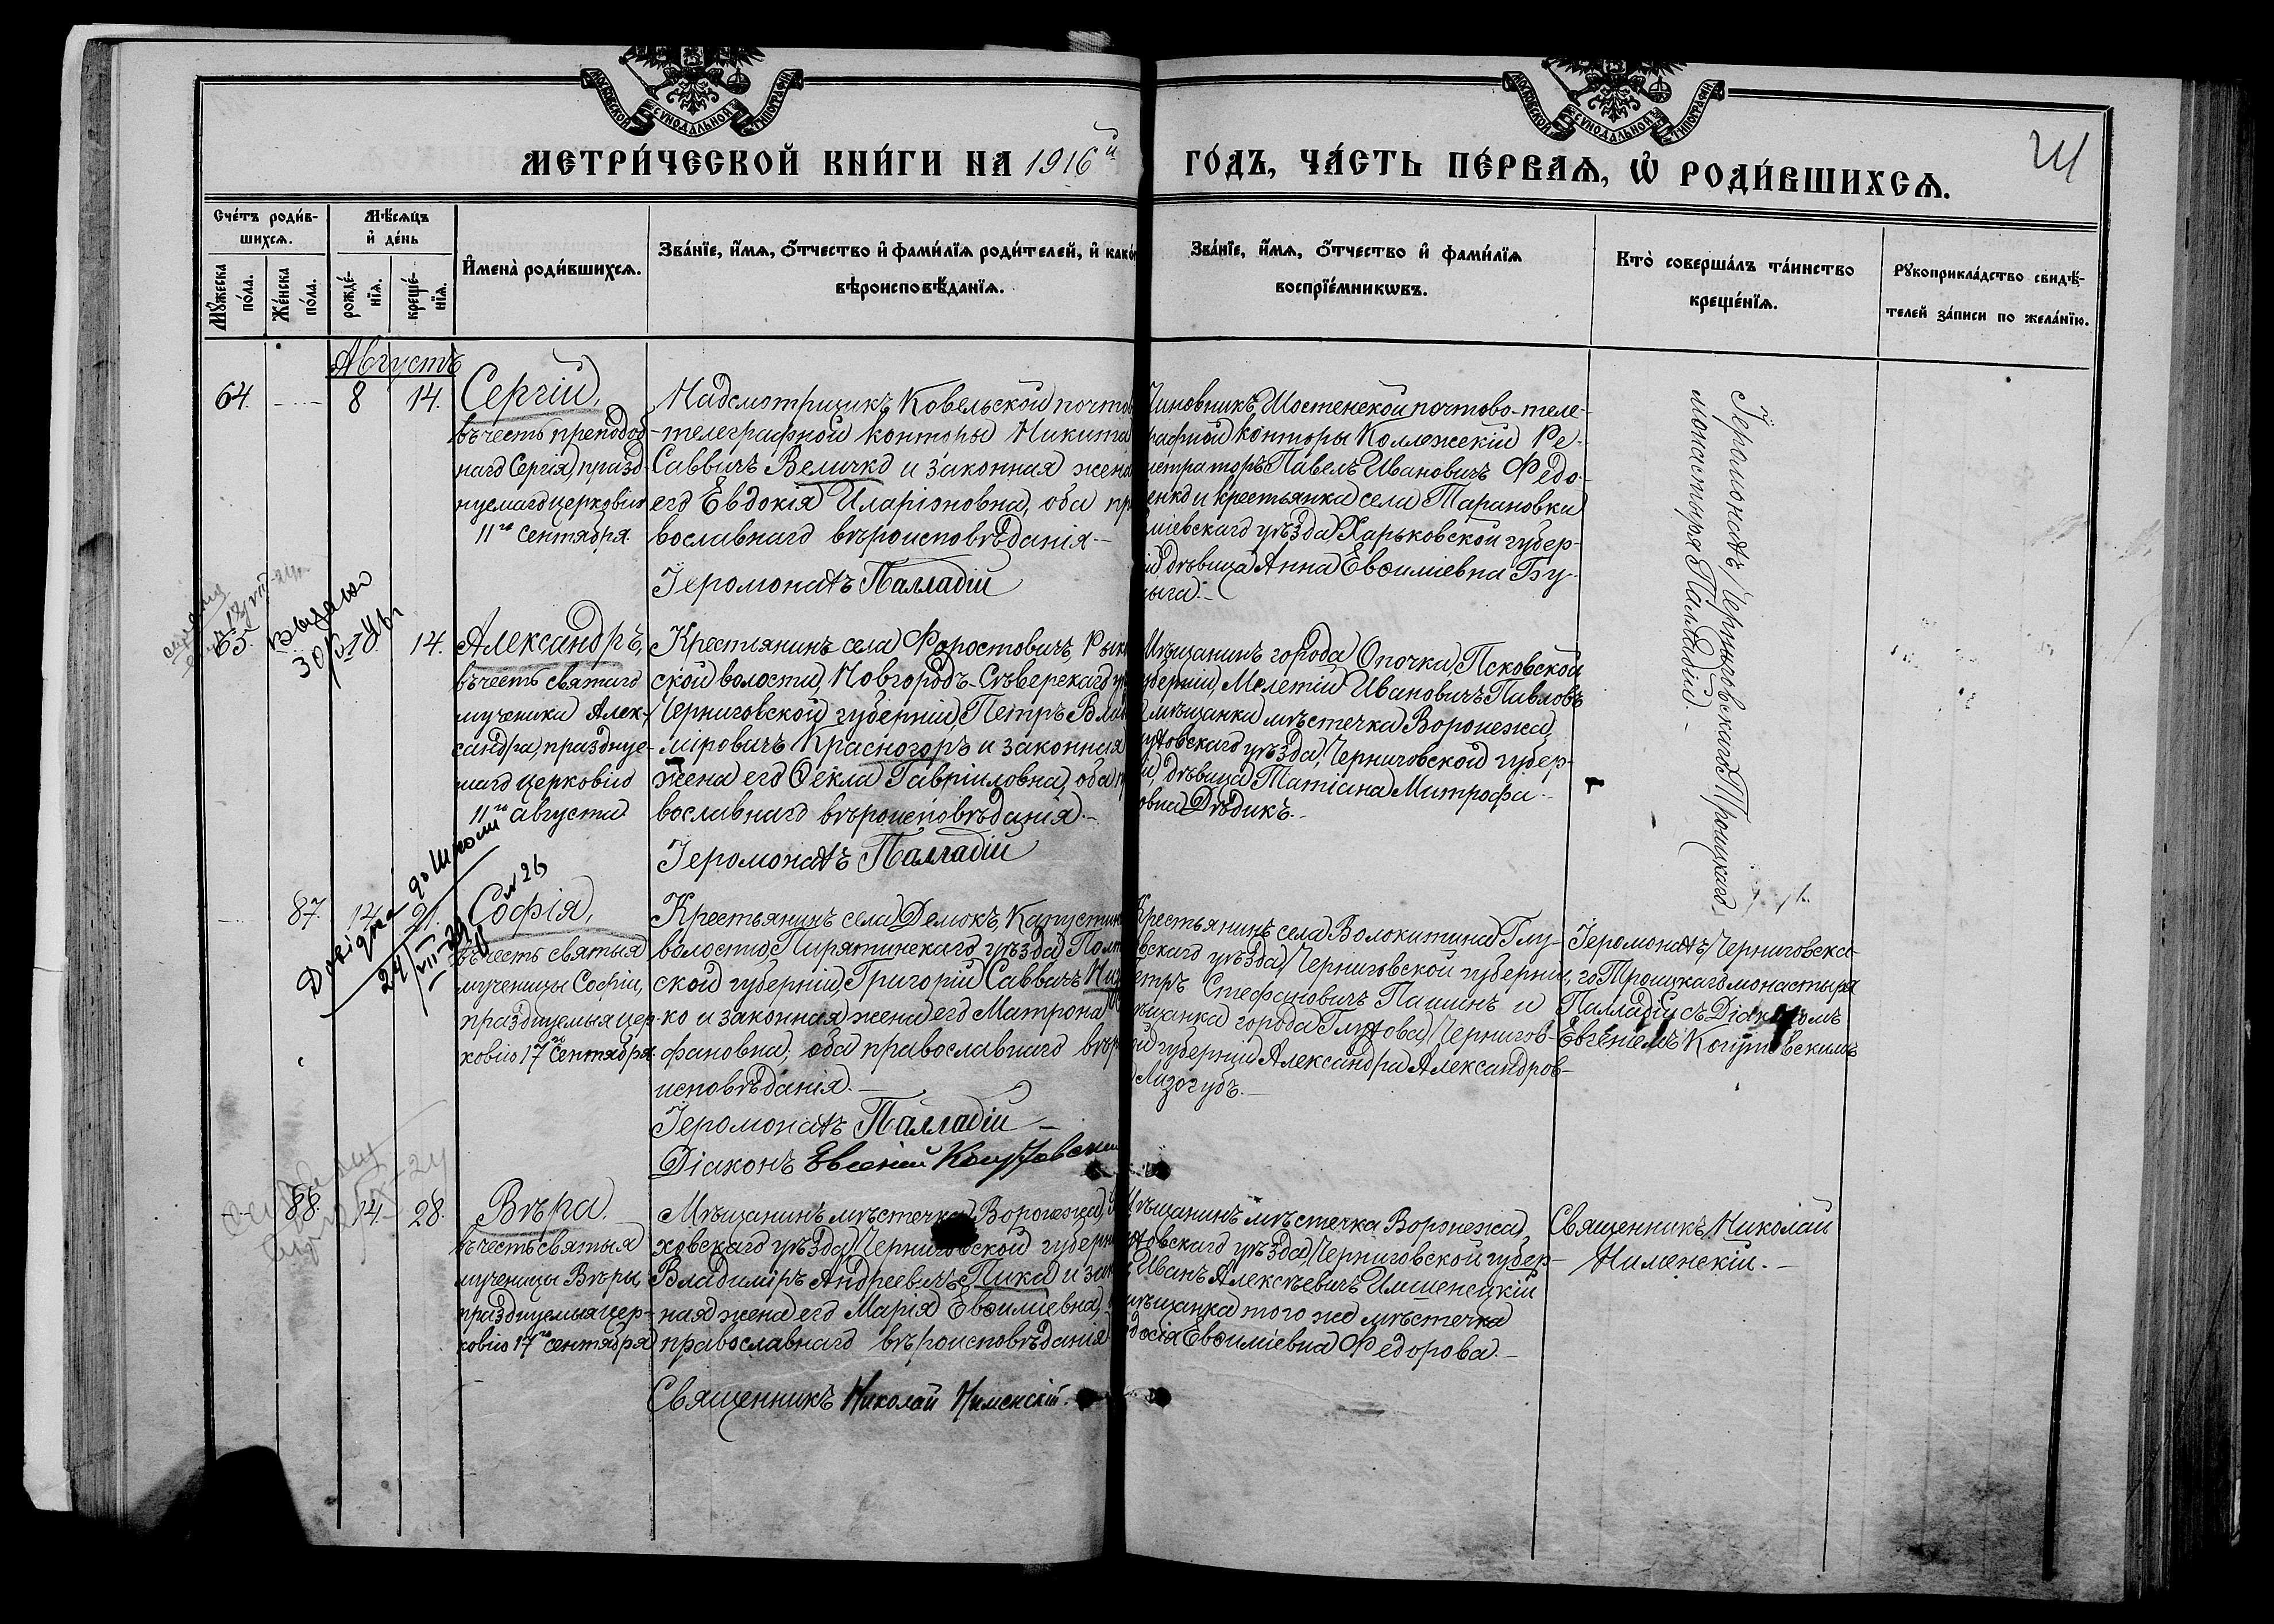 МОСКОВСКОЙ СУНОДАЛЬНОЙ ТИПОГРАФІИ
МОСКОВСКОЙ СУНОДАЛЬНОЙ ТИПОГРАФІИ
МЕТРИ́ЧЕСКОЙ КНИ́ГИ НА 1916й
ГО́ДЪ, ЧА́СТЬ ПЕ́РВАѦ, Ѡ҆ РОДИ́ВШИХСѦ.
Сче́тъ роди́в-
шихсѧ.
Мꙋ́жеска
по́ла.
Же́нска
по́ла.
Мѣ́сѧцъ
и҆ де́нь
рожде́-
нїѧ.
креще́-
нїѧ.
И҆мена̀ роди́вшихсѧ.
Зва́нїе, и҆́мѧ, ѻ҆́тчество и҆ фами́лїѧ роди́телей, и҆ како́
вѣроисповѣ́данїѧ.
Зва́нїе, и҆́мѧ, ѻ҆́тчество и҆ фами́лїѧ
воспрїе́мникѡвъ.
Кто̀ соверша́лъ та́инство
креще́нїѧ.
Рꙋкоприкла́дство свидѣ́-
телей за́писи по жела́нїю.
Августъ
64.
8
14.
Сергій,
въ честь преподоб
наго Сергія, празд-
нуемаго церковію
11го Сентября.
Надсмотрщикъ Ковельской почтов
-телеграфной конторы Никита
Саввичъ Величко и законная жена
его Евдокія Иларіоновна, оба пр
вославнаго вѣроисповѣданія.-
Іеромонахъ Палладій
Чиновникъ Шостенской почтово-теле-
рафной конторы Коллежскій Ре-
истраторъ Павелъ Ивановичъ Федо-
енко и крестьянка села Тарановки
міевскаго уѣзда Харьковской губер-
дѣвица Анна Евѳиміевна Бу-
Іеромонахъ Черниговскаго Троицкаго
монастыря Палладій.-
65.
выдано
30/V
18
14.
Александръ,
въ честь святаго
мученика Алек-
сандра, празднуе-
маго церковію
11го августа
Крестьянинъ села Форостовичъ, Рык
ской волости, Новгородъ-Сѣверскаго у
Черниговской губерніи, Петръ Влад
міровичъ Красногоръ и законная
жена его Ѳекла Гавріиловна, оба п
вославнаго вѣроисповѣданія.-
Іеромонахъ Палладій
Мѣщанинъ города Опочка, Псковской
уберніи, Мелетій Ивановичъ Павловъ
мѣщанка мѣстечка Воронежа,
уховскаго уѣзда, Черниговской губер-
іи, дѣвица Татіана Митрофа-
овна Дѣдикъ.-
87.
14
21.
№ 26
Довідка до школи
24/VII-29
Софія,
въ честь святыя
мученицы Софіи,
празднуемыя цер-
ковію 17го Сентября.
Крестьянинъ села Демокъ, Капустин
волости, Пирятинскаго уѣзда, Полт
ской губерніи, Григорій Саввичъ
ко и законная жена его Матрона
фановна, оба православнаго вѣр
исповѣданія.-
Іеромонахъ Палладій -
Діаконъ Евгеній
Крестьянинъ села Волокитина Глу-
овскаго уѣзда, Черниговской губерніи,
етръ Стефановичъ Пашинъ и
щанка города Глухова, Чернигов-
й губерніи Александра Александров-
Лизогубъ.-
Іеромонахъ Черниговска-
го Троицкаго монастыря
Палладій съ Діакономъ
Евгеніемъ
88.
14.
28.
Вѣра.
въ честь святыя
мученицы Вѣры,
празднуемыя цер-
ковію 17го Сентября
Мѣщанинъ мѣстечка Воронежа,
ховскаго уѣзда, Черниговской губерн
Владиміръ Андреевичъ Пика и зак
ная жена его Марія Евѳиміевна,
православнаго вѣроисповѣданія
Священникъ Николай Нименскій.
Мѣщанинъ мѣстечка Воронежа,
уховскаго уѣзда, Черниговской губер-
Иванъ Алексѣевичъ Имшенецкій
мѣщанка того же мѣстечка
досія Евѳиміевна Федорова.-
Священникъ Николай
Нименскій.-